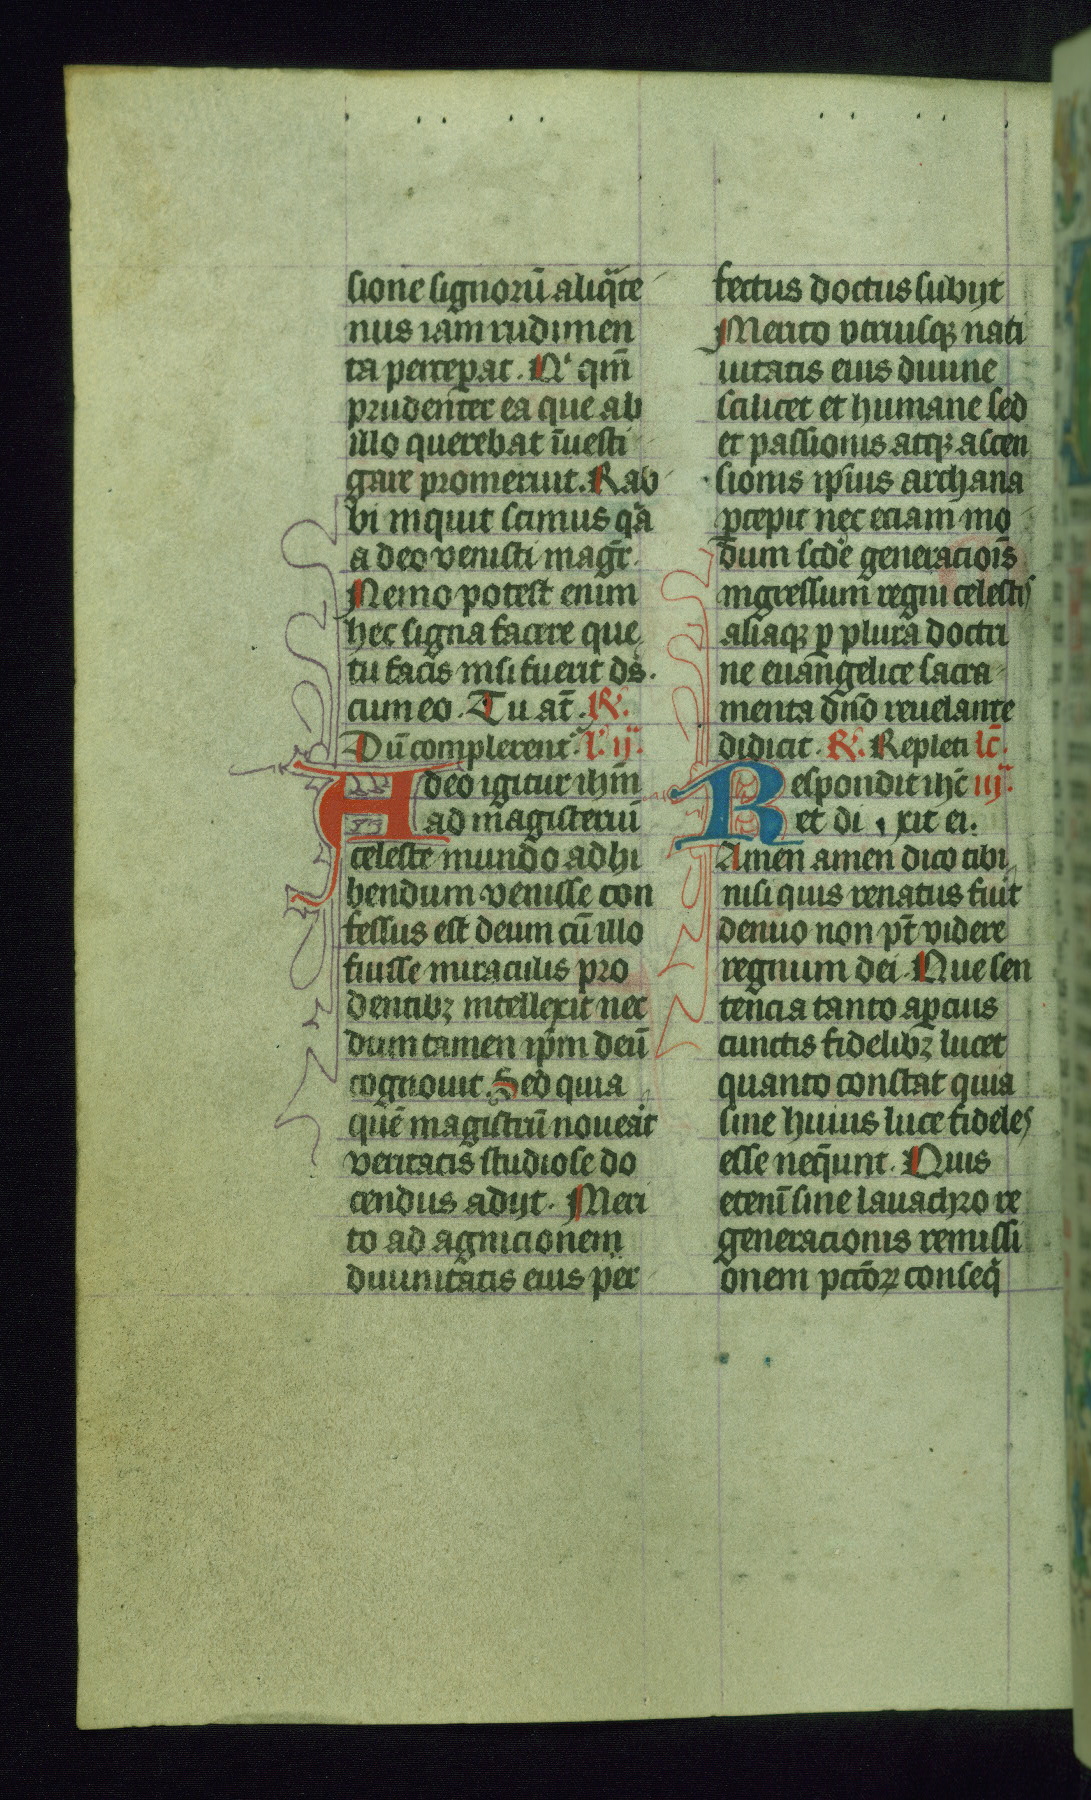 sione signorū aliq̄te
nus iam rudimen
ta perceꝑat. Nͨ qm̄
prudenter ea que ab
illo querebat īuesti
gare promeruit. Rab
bi inquit scimus q̄a
a deo venisti magr̄.
Nemo potest enim
hec signa facere que
tu facis nisi fuerit ds̄.
cum eo. Tu at̄. R̸.
Dū complerent̄. l̄. ij.
A deo igitur ihm̄
ad magisteriū
celeste mundo adhi
bendum venisse con
fessus est deum cū illo
fuisse miraculis pro
dentibꝫ intellexit nec
dum tamen ip̄m deū
cognouit. Sed quia
quē magistrū nouerat
veritatis studiose do
cendus adijt. Meri
to ad agnicionem
diuinitatis eius per
fectus doctus subijt
Merito vtriusqꝫ nati
uitatis eius diuine
scilicet et humane sed
et passionis atqꝫ ascen
sionis ip̄ius archana
ꝑcepit nec eciam mo
dum scd̄e generaciois̄
ingressum regni celestis
aliaqꝫ ꝑ plura doctri
ne euangelice sacra
menta dn̄o reuelante
didicit. R̸. Repleti lc̄.
Respondit ihc̄ iij.
et dixit ei.
Amen amen dico tibi
nisi quis renatus fūit
denuo non pt̄ videre
regnum dei. Que sen
tencia tanto aꝑcius
cunctis fidelibꝫ lucet
quanto constat quia
sine huius luce fideles
esse neq̄unt. Quis
etenī sine lauachro re
generacionis remissi
onem pctōꝝ conseq̄